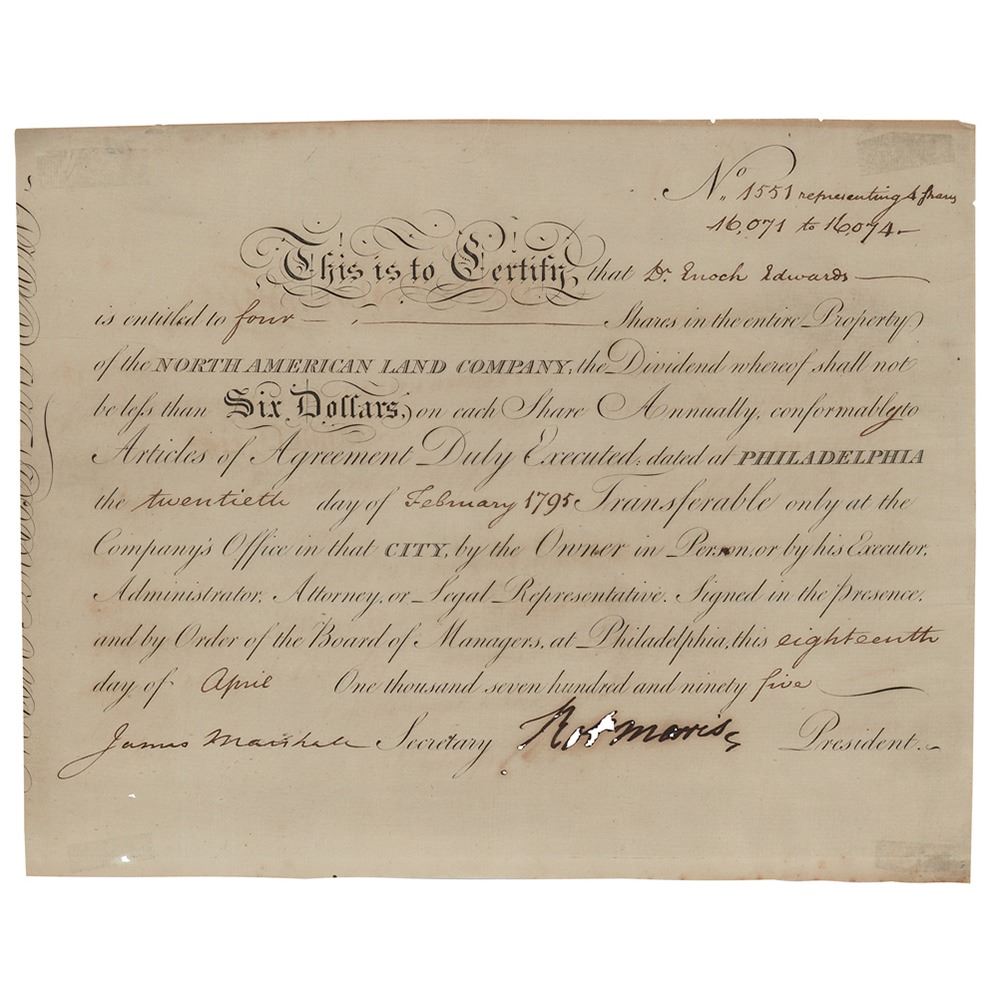 No. 1551 representing 4 shares
16,071 to 16,074
This is to Certify, that Dr. Enoch Edwards
is entitled to four Shares in the entire Property
of the NORTH AMERICAN LAND COMPANY, the Dividend whereof shall not
be less than Six Dollars, on each Share Annually, conformably to
Articles of Agreement Duly Executed; dated at PHILADELPHIA
the twentieth day of February 1795 Transferable only at the
Company's Office in that CITY, by the Owner in Person, or by his Executor,
Administrator, Attorney, or Legal Representative. Signed in the presence,
and by Order of the Board of Managers, at Philadelphia, this eighteenth
day of April One thousand seven hundred and ninety five
James Marshall Secretary Rob Morris President.